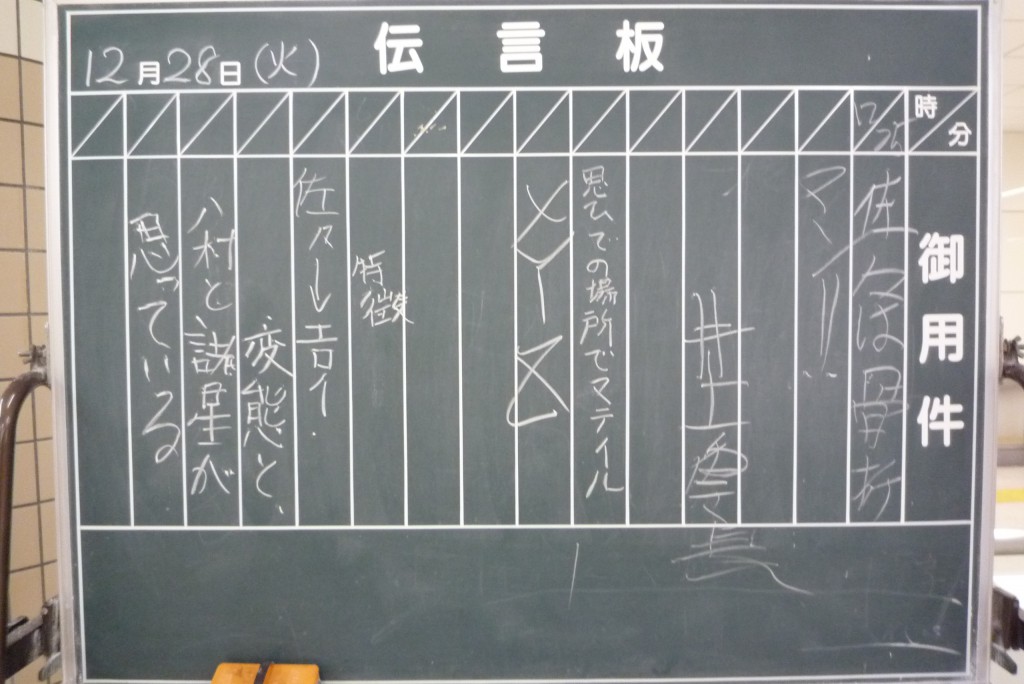 伝言板
12月28日(火)
時分
御用件
佐々は骨折
マン!!
井上
思ひでの場所でマテイル
特徴
佐々しエロイ.
変態と、
八村と諸星が
思っている